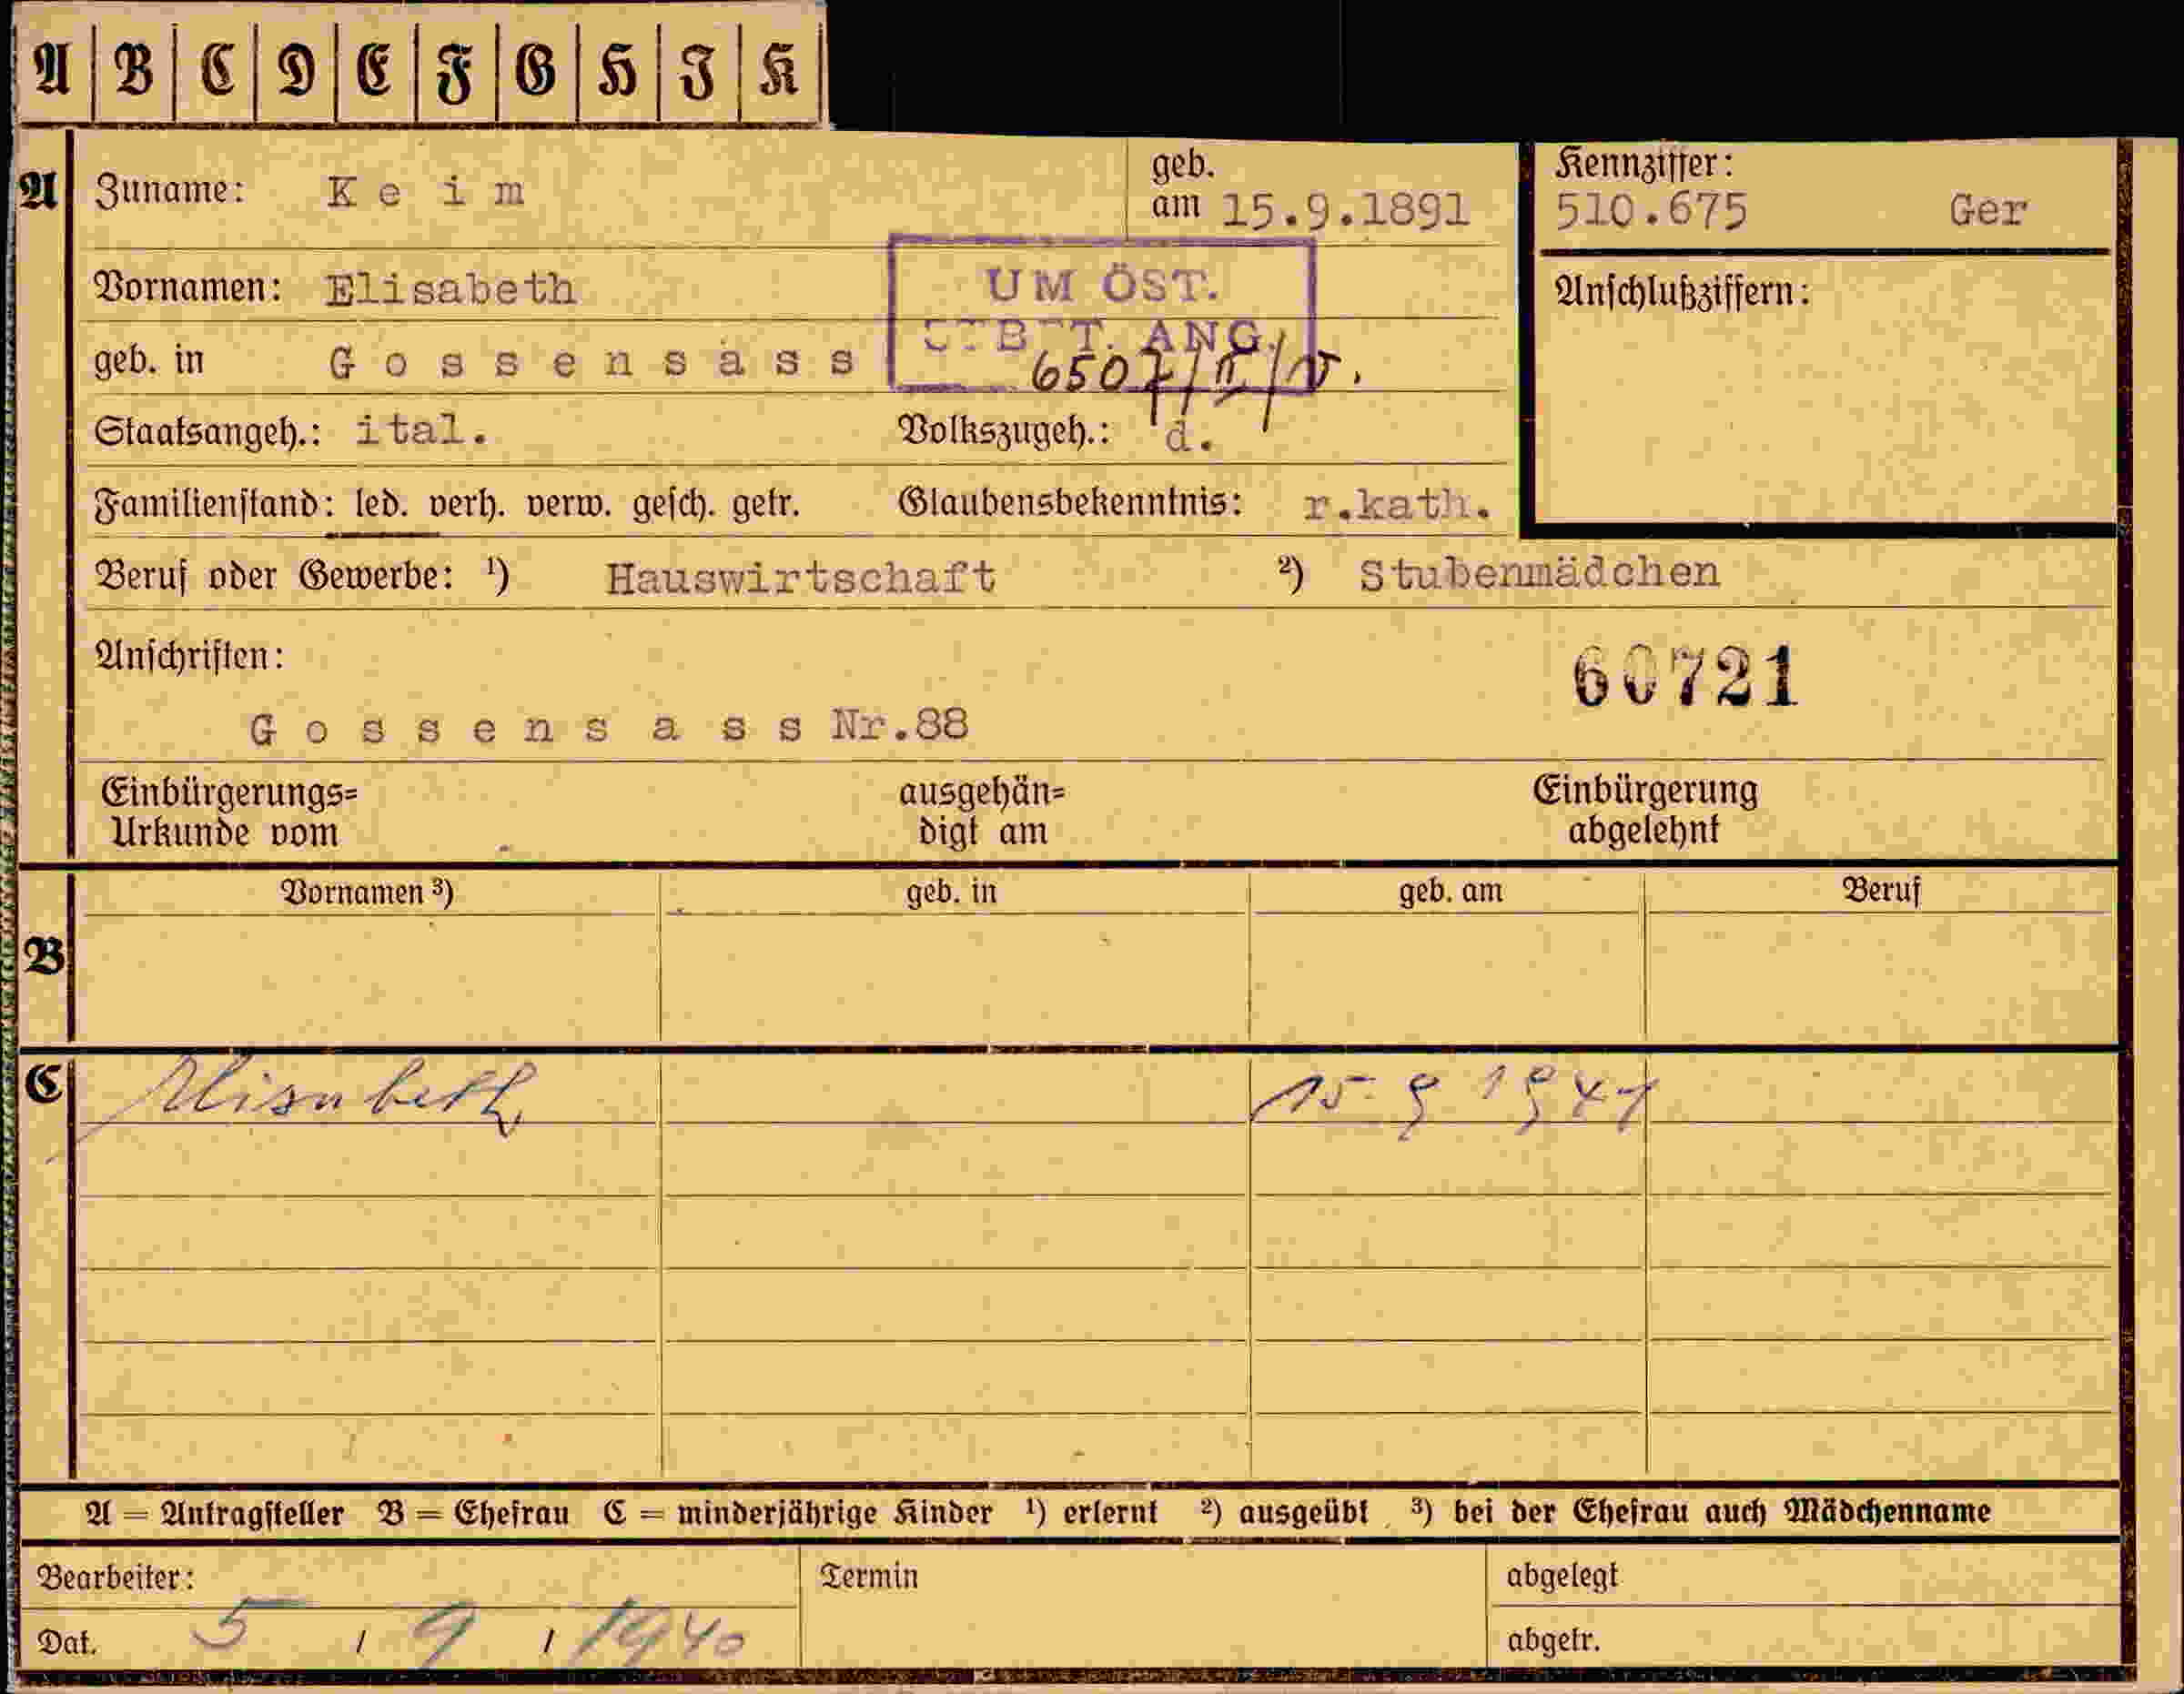 A B C D E F G H J K
A Zuname: Keim geb. am 15.9.1891 Kennziffer: 510.675 Ger
Vornamen: Elisabeth UM ÖST. Anschlußziffern:
geb. in Gossensass T. ANG. 6507/II/V.
Staatsangeh.: ital. Volkszugeh.: d.
Familienstand: led. verh. verw. gesch. getr. Glaubensbekenntnis: r.kath.
Beruf oder Gewerbe: ¹) Hauswirtschaft ²) Stubenmädchen
Anschriften: 60721
Gossensass Nr.88
Einbürgerungs= ausgehän= Einbürgerung
Urkunde vom digt am abgelehnt
Vornamen ³) geb. in geb. am Beruf
B
C Elisabeth 15. 9 1941
A = Antragsteller B = Ehefrau C = minderjährige Kinder ¹) erlernt ²) ausgeübt ³) bei der Ehefrau auch Mädchenname
Bearbeiter: Termin abgelegt
Dat. 5 / 9 / 1940 abgetr.